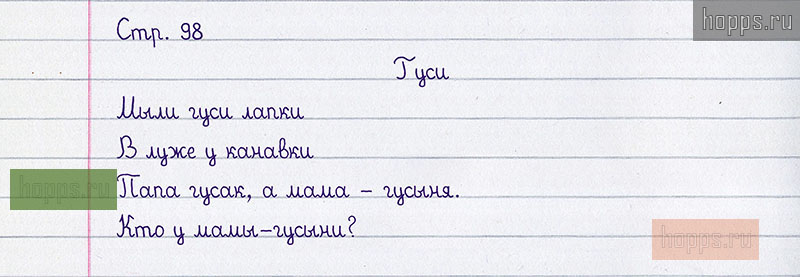 hopps.ru
Стр. 98
Гуси
Мыли гуси лапки
В луже у канавки
hopps.ru
Папа гусак, а мама – гусыня.
Кто у мамы-гусыни?
hopps.ru